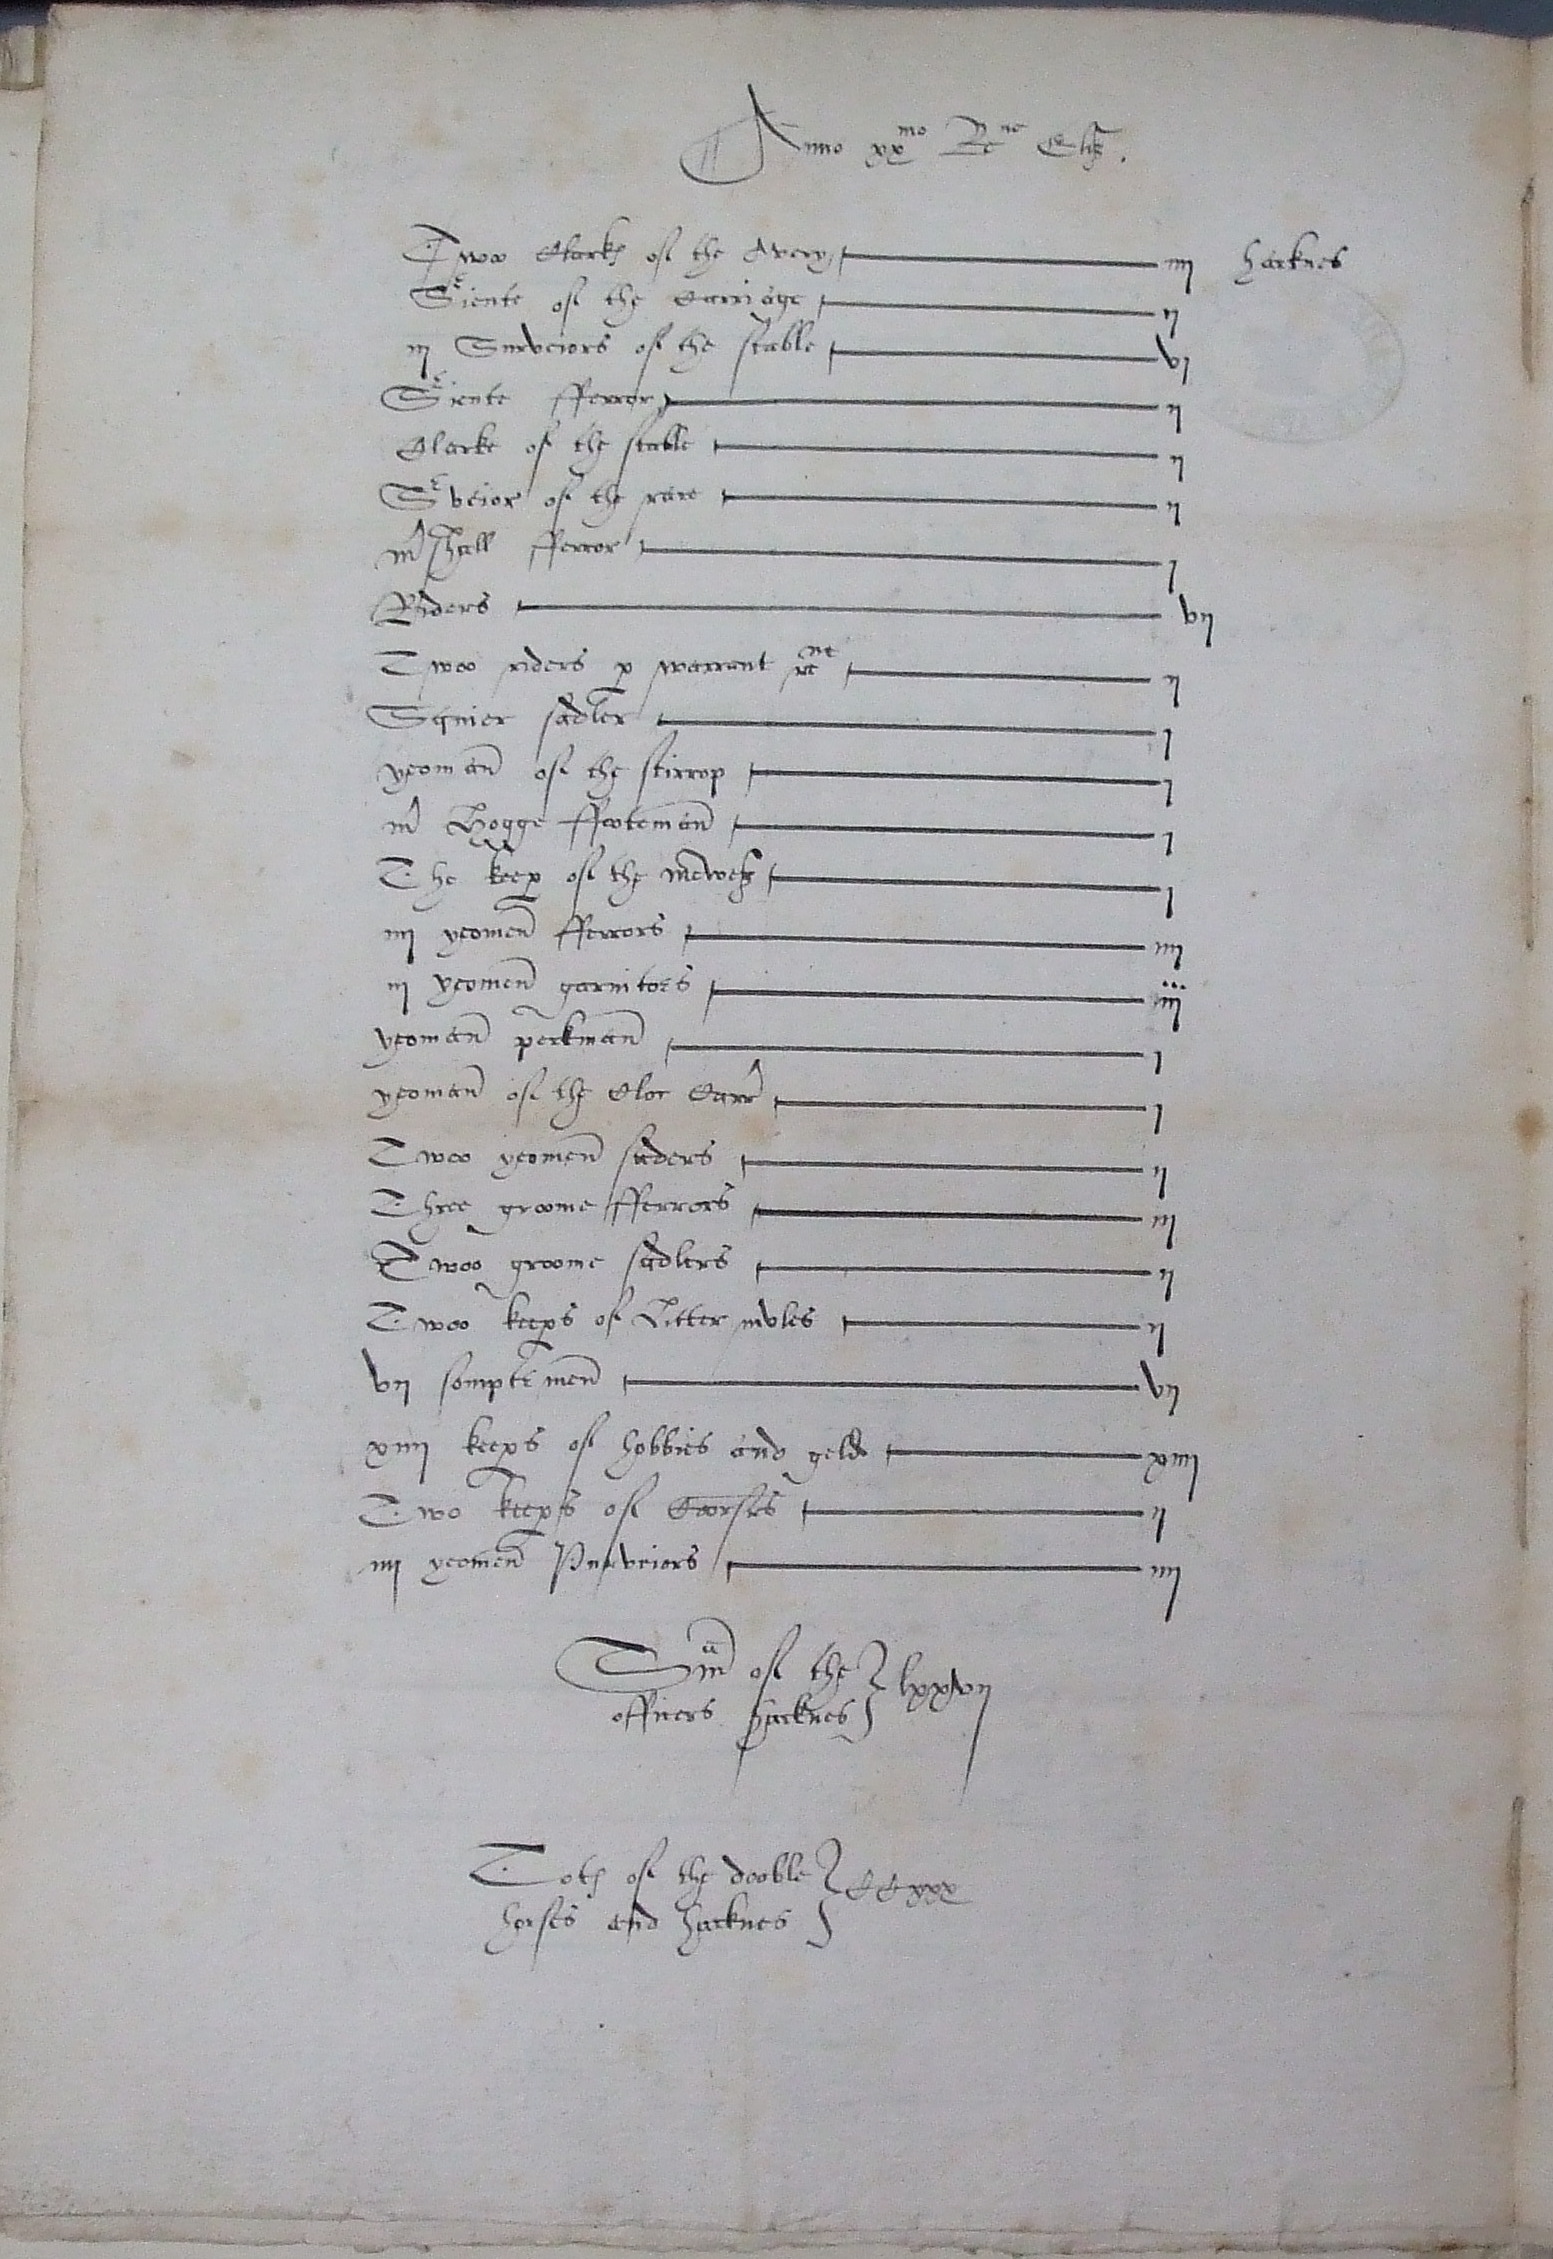 Anno xx^mo R^ne Eliz.
Twoo Clarkes of the Avery iiij hacknes
S^riente of the Carriage ij
iij Surveiors of the stable vj
S^riente fferror ij
Clarke of the stable ij
S^rveior of the race ij
m^rshall fferror j
Riders vij
Twoo riders p warrant re^ne ij
Squier sadler j
yeoman of the stirrop j
m^r Hogge ffoteman j
The keep of the mewes j
iiij yeomen fferrors iiij
iij yeomen garnitors iij
yeoman perkman j
yeoman of the Clos Carr j
Twoo yeomen sadlers ij
Three groome fferrors iij
Twoo groome sadlers ij
Twoo keeps of Litter mvles ij
vij sompterman vij
xiiij keeps of hobbies and geld xiiij
Two keeps of Coorsers ij
iiij yeomen Purveiors iiij
Sm^a of the
officers hacknes } lxxvij
Totes of the dooble
horses and hacknes } CCxxx